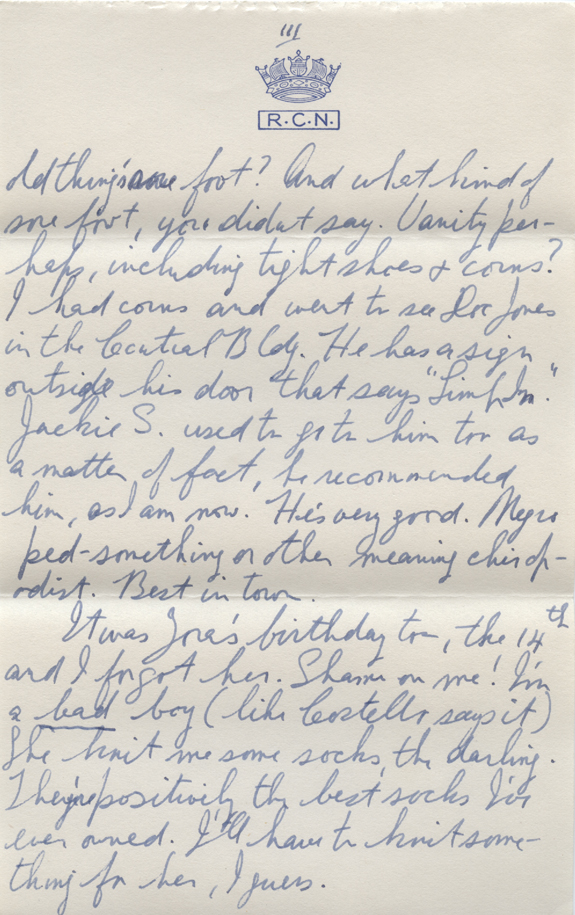 III
R.C.N.
old thing's sore foot? And what kind of
sore foot, you didn't say. Vanity per-
haps, including tight shoes & corns?
I had corns and went to see Doc Jones
in the Central Bldg. He has a sign
outside his door that says "Limp In."
Jackie S. used to go to him too as
a matter of fact, he recommended
him, as I am now. He's very good. Negro
ped-something or other meaning chirop-
odist. Best in town.
It was Zora's birthday too, the 14th
and I forgot her. Shame on me! I'm
a bad boy (like Costello says it)
She knit me some socks, the darling.
They're positively the best socks I've
ever owned. I'll have to knit some-
thing for her, I guess.